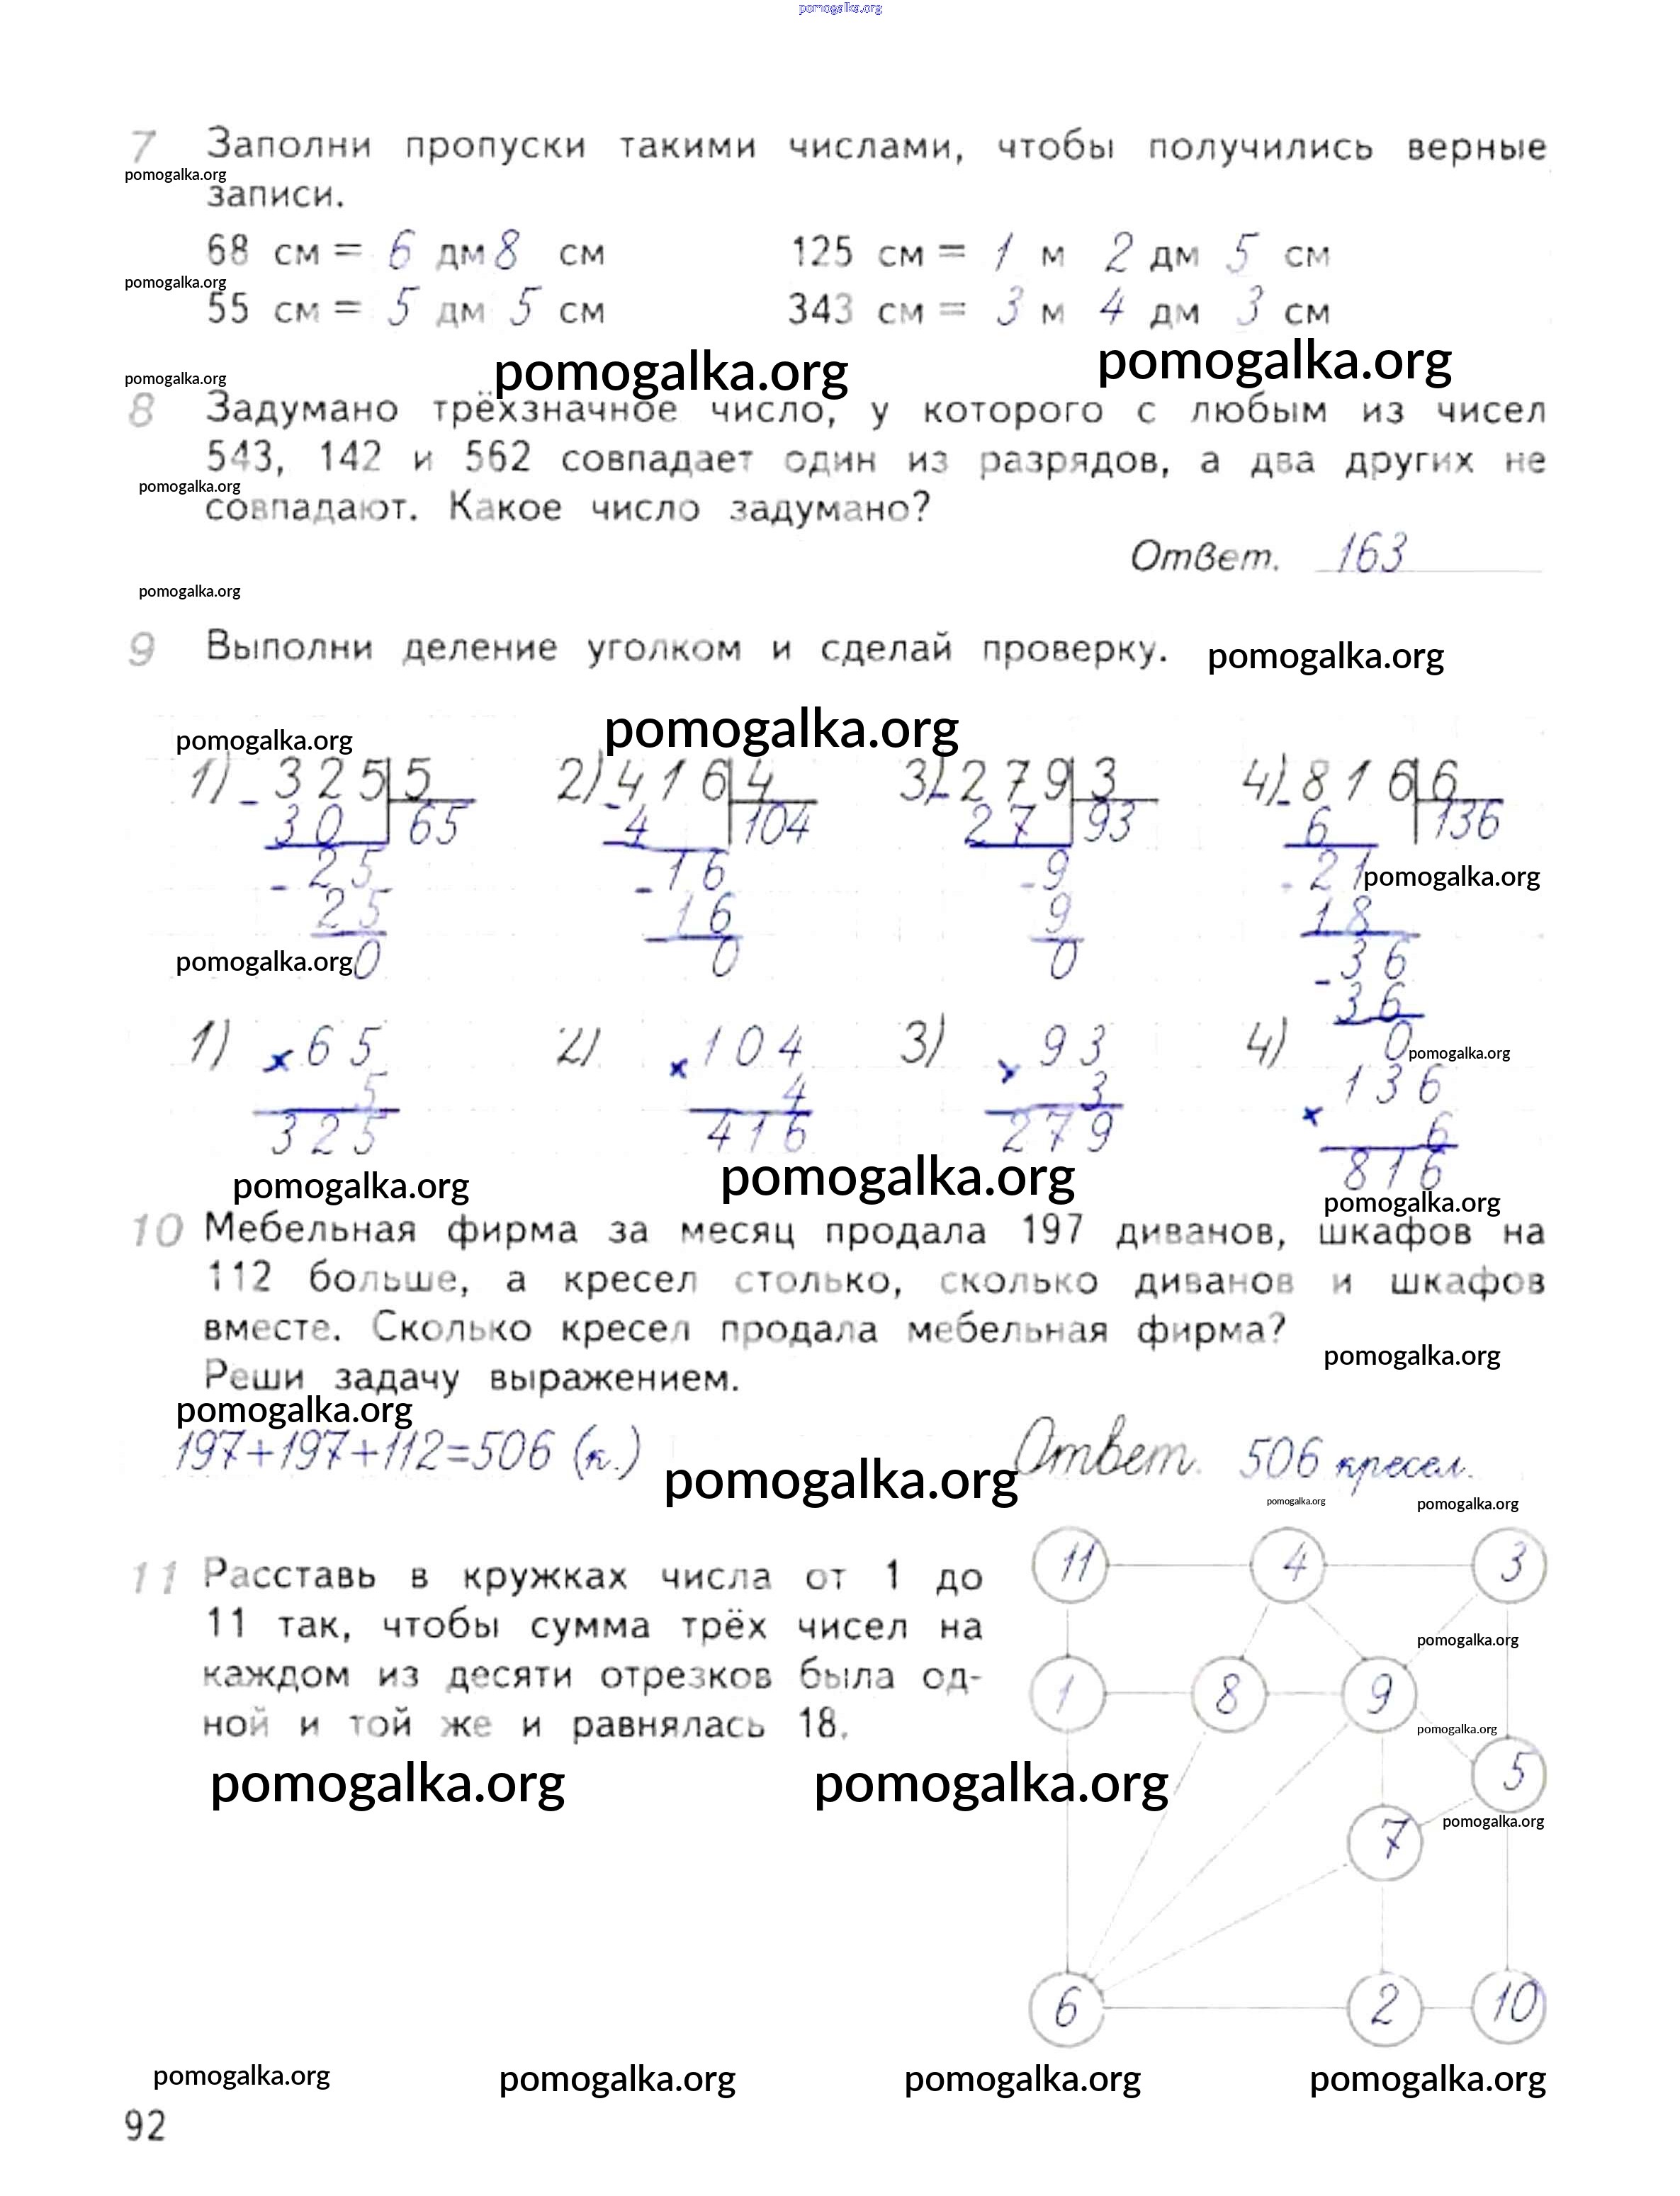 pomogalka.org
7 Заполни пропуски такими числами, чтобы получились верные
pomogalka.org
записи.
68 см = 6 дм 8 см 125 см = 1 м 2 дм 5 см
pomogalka.org
55 см = 5 дм 5 см 343 см = 3 м 4 дм 3 см
pomogalka.org pomogalka.org pomogalka.org
8 Задумано трёхзначное число, у которого с любым из чисел
543, 142 и 562 совпадает один из разрядов, а два других не
pomogalka.org
совпадают. Какое число задумано?
Ответ. 163
pomogalka.org
9 Выполни деление уголком и сделай проверку. pomogalka.org
pomogalka.org pomogalka.org
1) - 325 5 2) - 416 4 3) - 279 3 4) - 816 6
30 65 4 104 27 93 6 136
- 25 - 16 - 9 - 21 pomogalka.org
25 16 9 18
pomogalka.org 0 0 0 - 36
36
1) × 65 2) × 104 3) × 93 4) 0 pomogalka.org
5 4 3 × 136
325 416 279 6
816
pomogalka.org pomogalka.org pomogalka.org
10 Мебельная фирма за месяц продала 197 диванов, шкафов на
112 больше, а кресел столько, сколько диванов и шкафов
вместе. Сколько кресел продала мебельная фирма?
pomogalka.org
Реши задачу выражением.
pomogalka.org
197+197+112=506 (к.) Ответ. 506 кресел.
pomogalka.org
pomogalka.org pomogalka.org
11 4 3
11 Расставь в кружках числа от 1 до
11 так, чтобы сумма трёх чисел на
pomogalka.org
каждом из десяти отрезков была од-
1 8 9
ной и той же и равнялась 18.
pomogalka.org
pomogalka.org pomogalka.org
5
pomogalka.org
7
6 2 10
pomogalka.org pomogalka.org pomogalka.org pomogalka.org
92